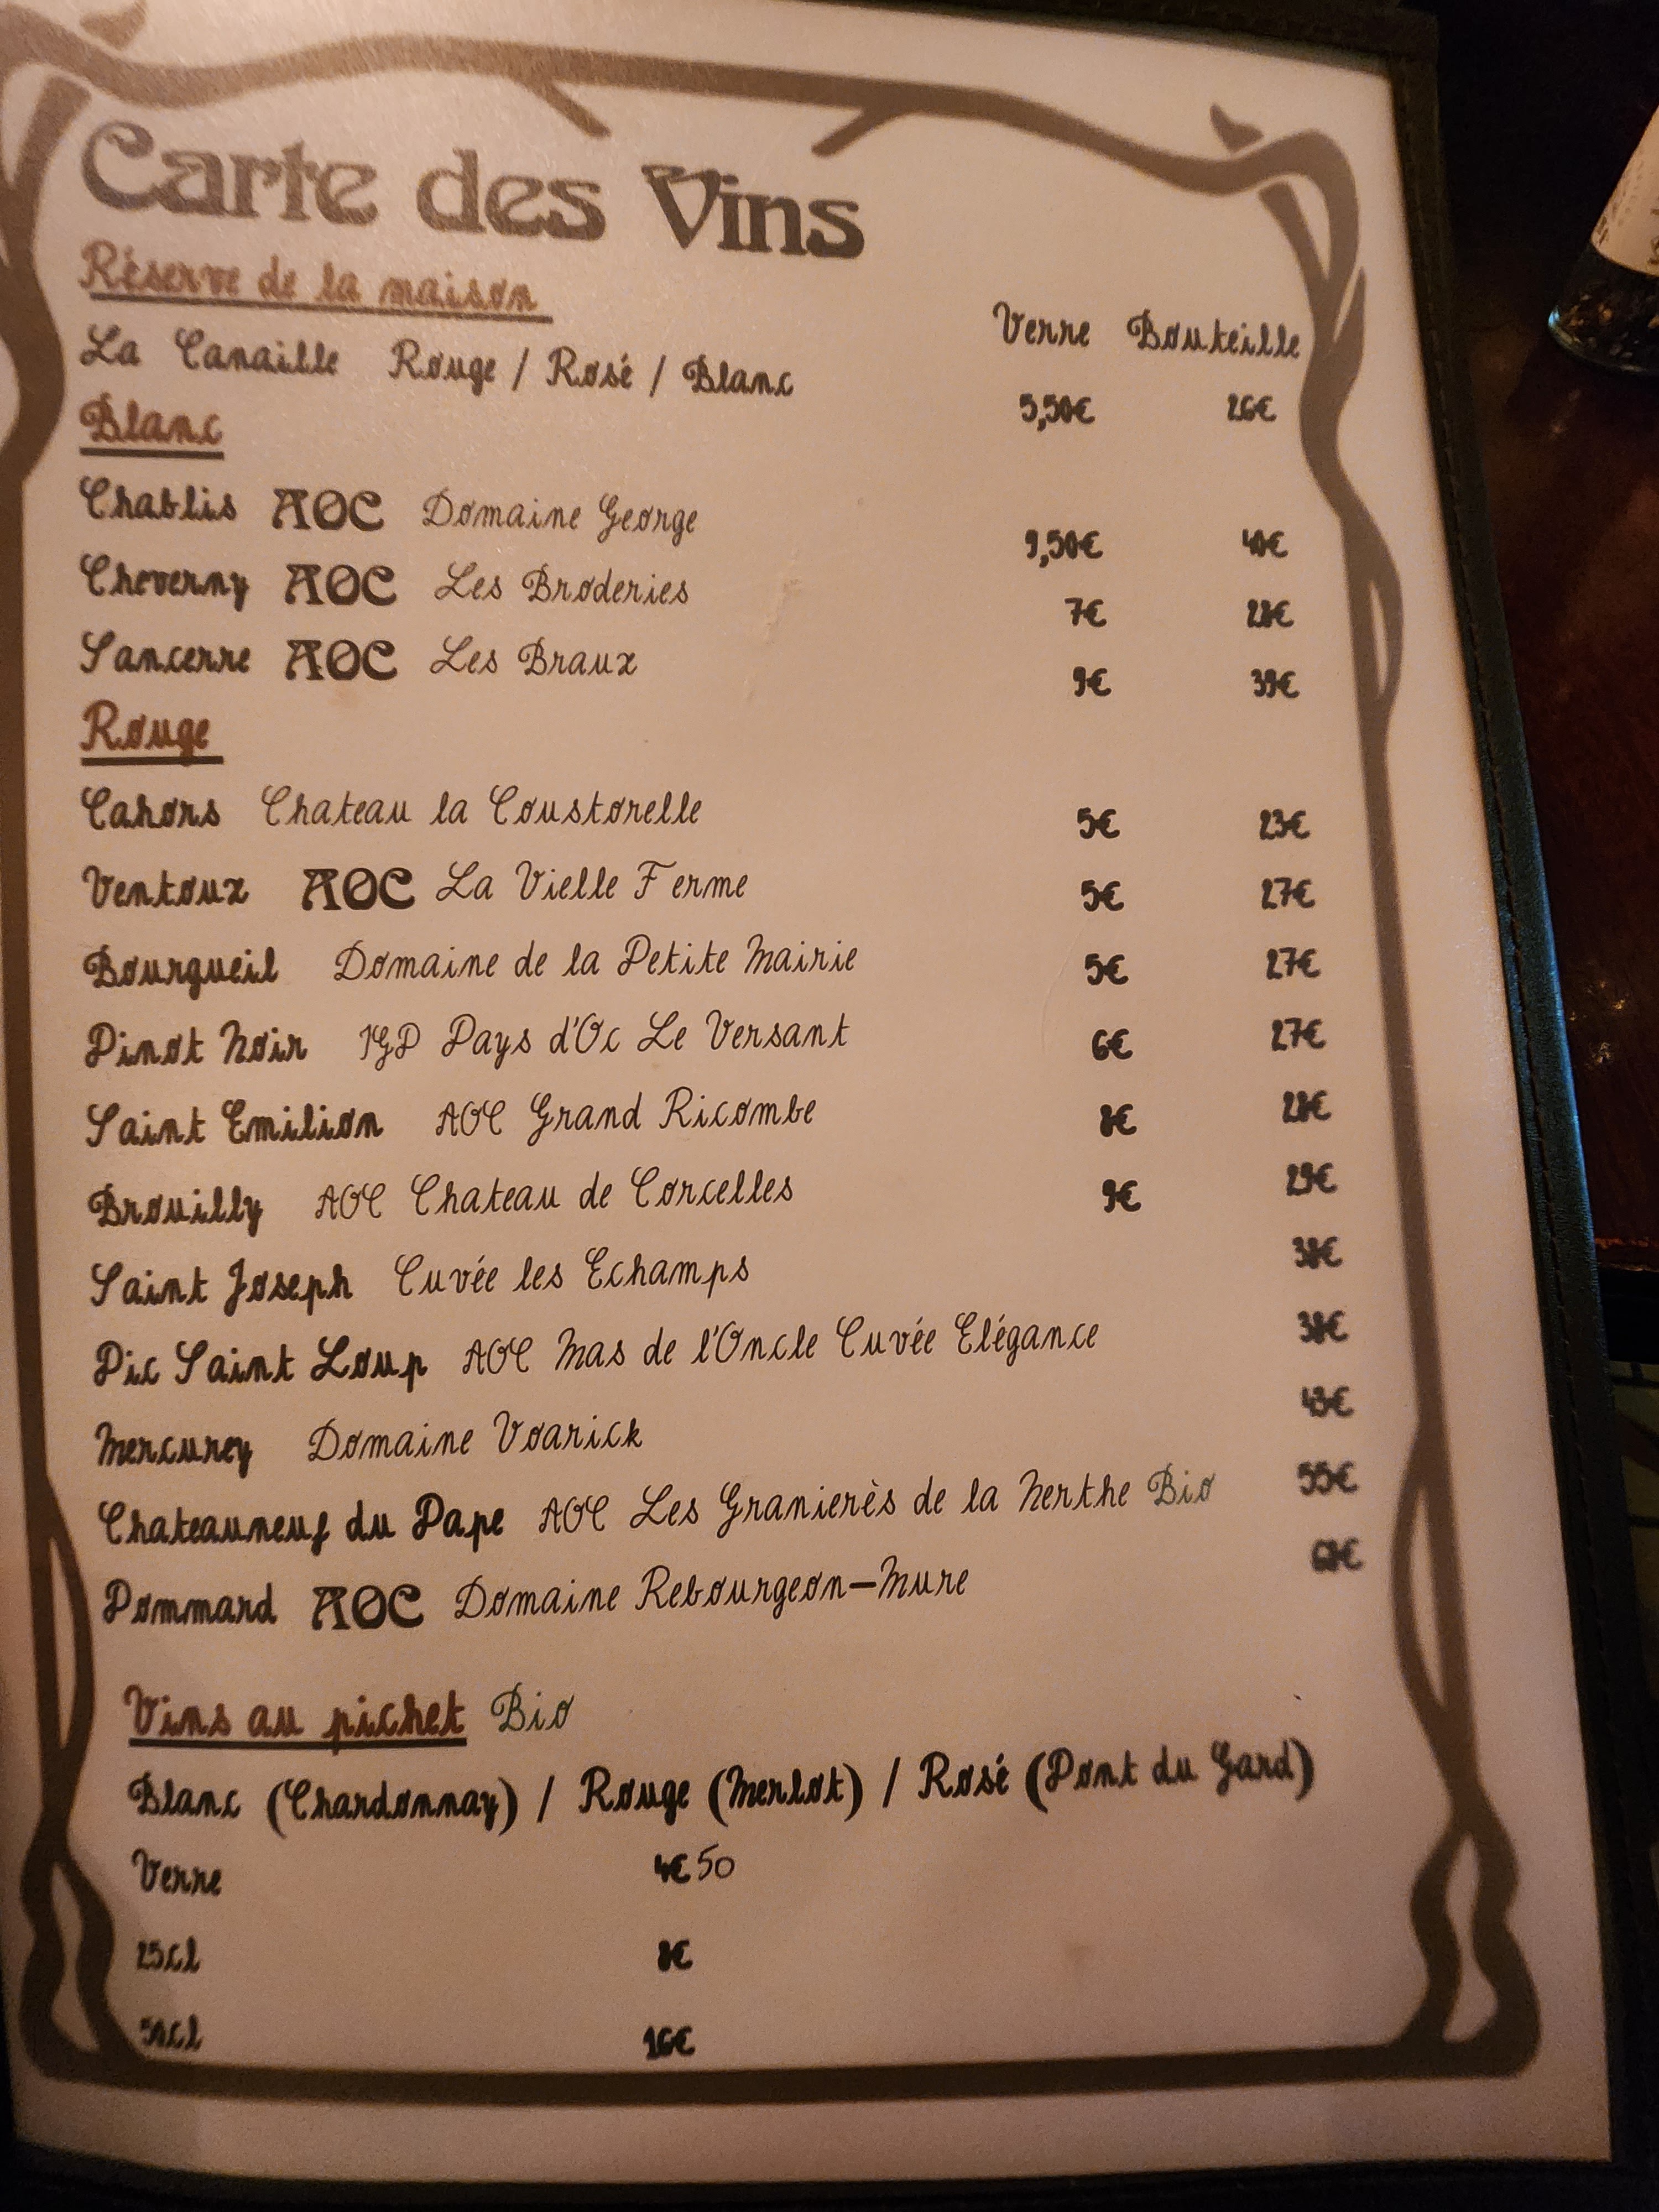 Carte des Vins
Réserve de la maison
Verre Bouteille
La Canaille Rouge / Rosé / Blanc 5,50€ 26€
Blanc
Chablis AOC Domaine George 9,50€ 40€
Cheverny AOC Les Broderies 7€ 28€
Sancerre AOC Les Braux 9€ 39€
Rouge
Cahors Chateau la Coustorelle 5€ 23€
Ventoux AOC La Vielle Ferme 5€ 27€
Bourgueil Domaine de la Petite Mairie 5€ 27€
Pinot Noir IGP Pays d'Oc Le Versant 6€ 27€
Saint Emilion AOC Grand Ricombe 8€ 28€
Brouilly AOC Chateau de Corcelles 9€ 29€
Saint Joseph Cuvée les Echamps 38€
Pic Saint Loup AOC Mas de l'Oncle Cuvée Elégance 38€
Mercurey Domaine Voarick 43€
Chateauneuf du Pape AOC Les Granierès de la Nerthe Bio 55€
Pommard AOC Domaine Rebourgeon-Mure
Vins au pichet Bio
Blanc (Chardonnay) / Rouge (Merlot) / Rosé (Pont du Gard)
Verre 4€50
25cl 8€
50cl 16€